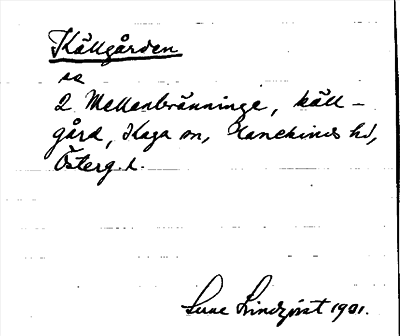 Källgården
se
2 Mellanbränninge, käll-
gård, Kaga sn, Hanekinds hd,
Österg. l.
Sune Lindqvist 1901.